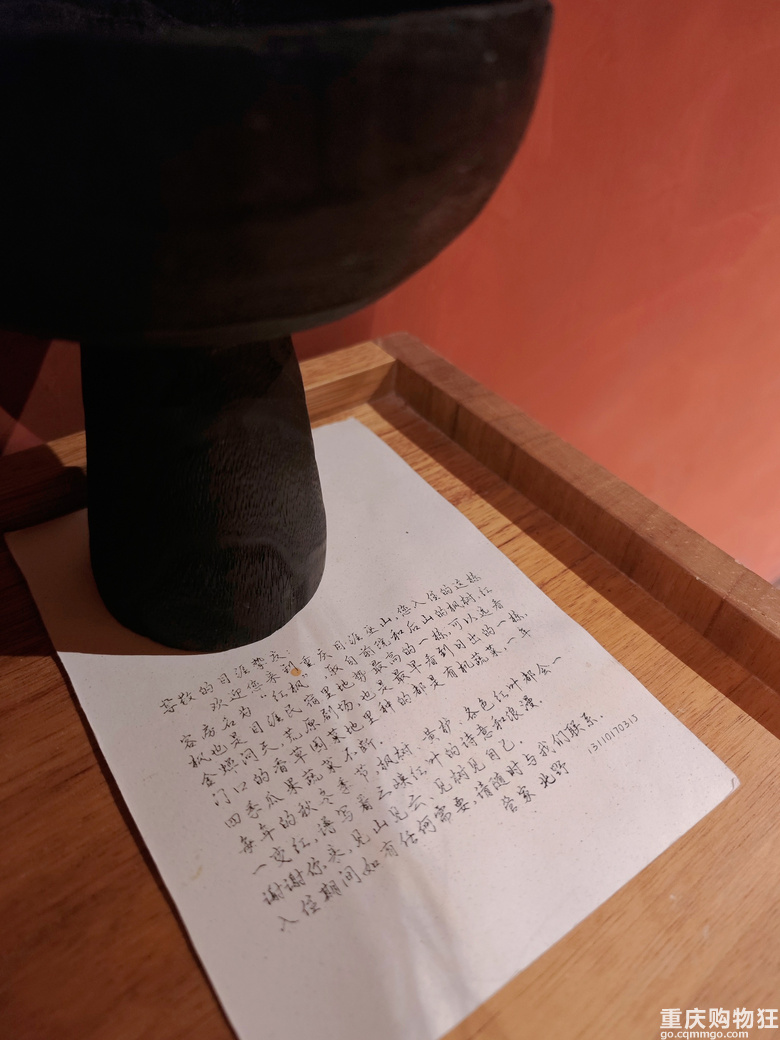 尊敬的目涯挚友：
欢迎您来到重庆目涯巫山，您入住的这栋
客房名为“红枫”，取自前院和后山的枫树，红
枫也是目涯民宿里地势最高的一栋，可以远看
金烟问天，荒原剧场，也是最早看到日出的一栋。
门口的香草园菜地里种的都是有机蔬菜，一年
四季瓜果蔬菜不断。
每年的秋冬季节，枫树、黄栌、各色红叶都会一
一变红，谱写着三峡红叶的诗意和浪漫。
谢谢你来，见山见云，见树见自己。
入住期间如有任何需要，请随时与我们联系。
管家 北野 13110170313
重庆购物狂
go.cqmmgo.com